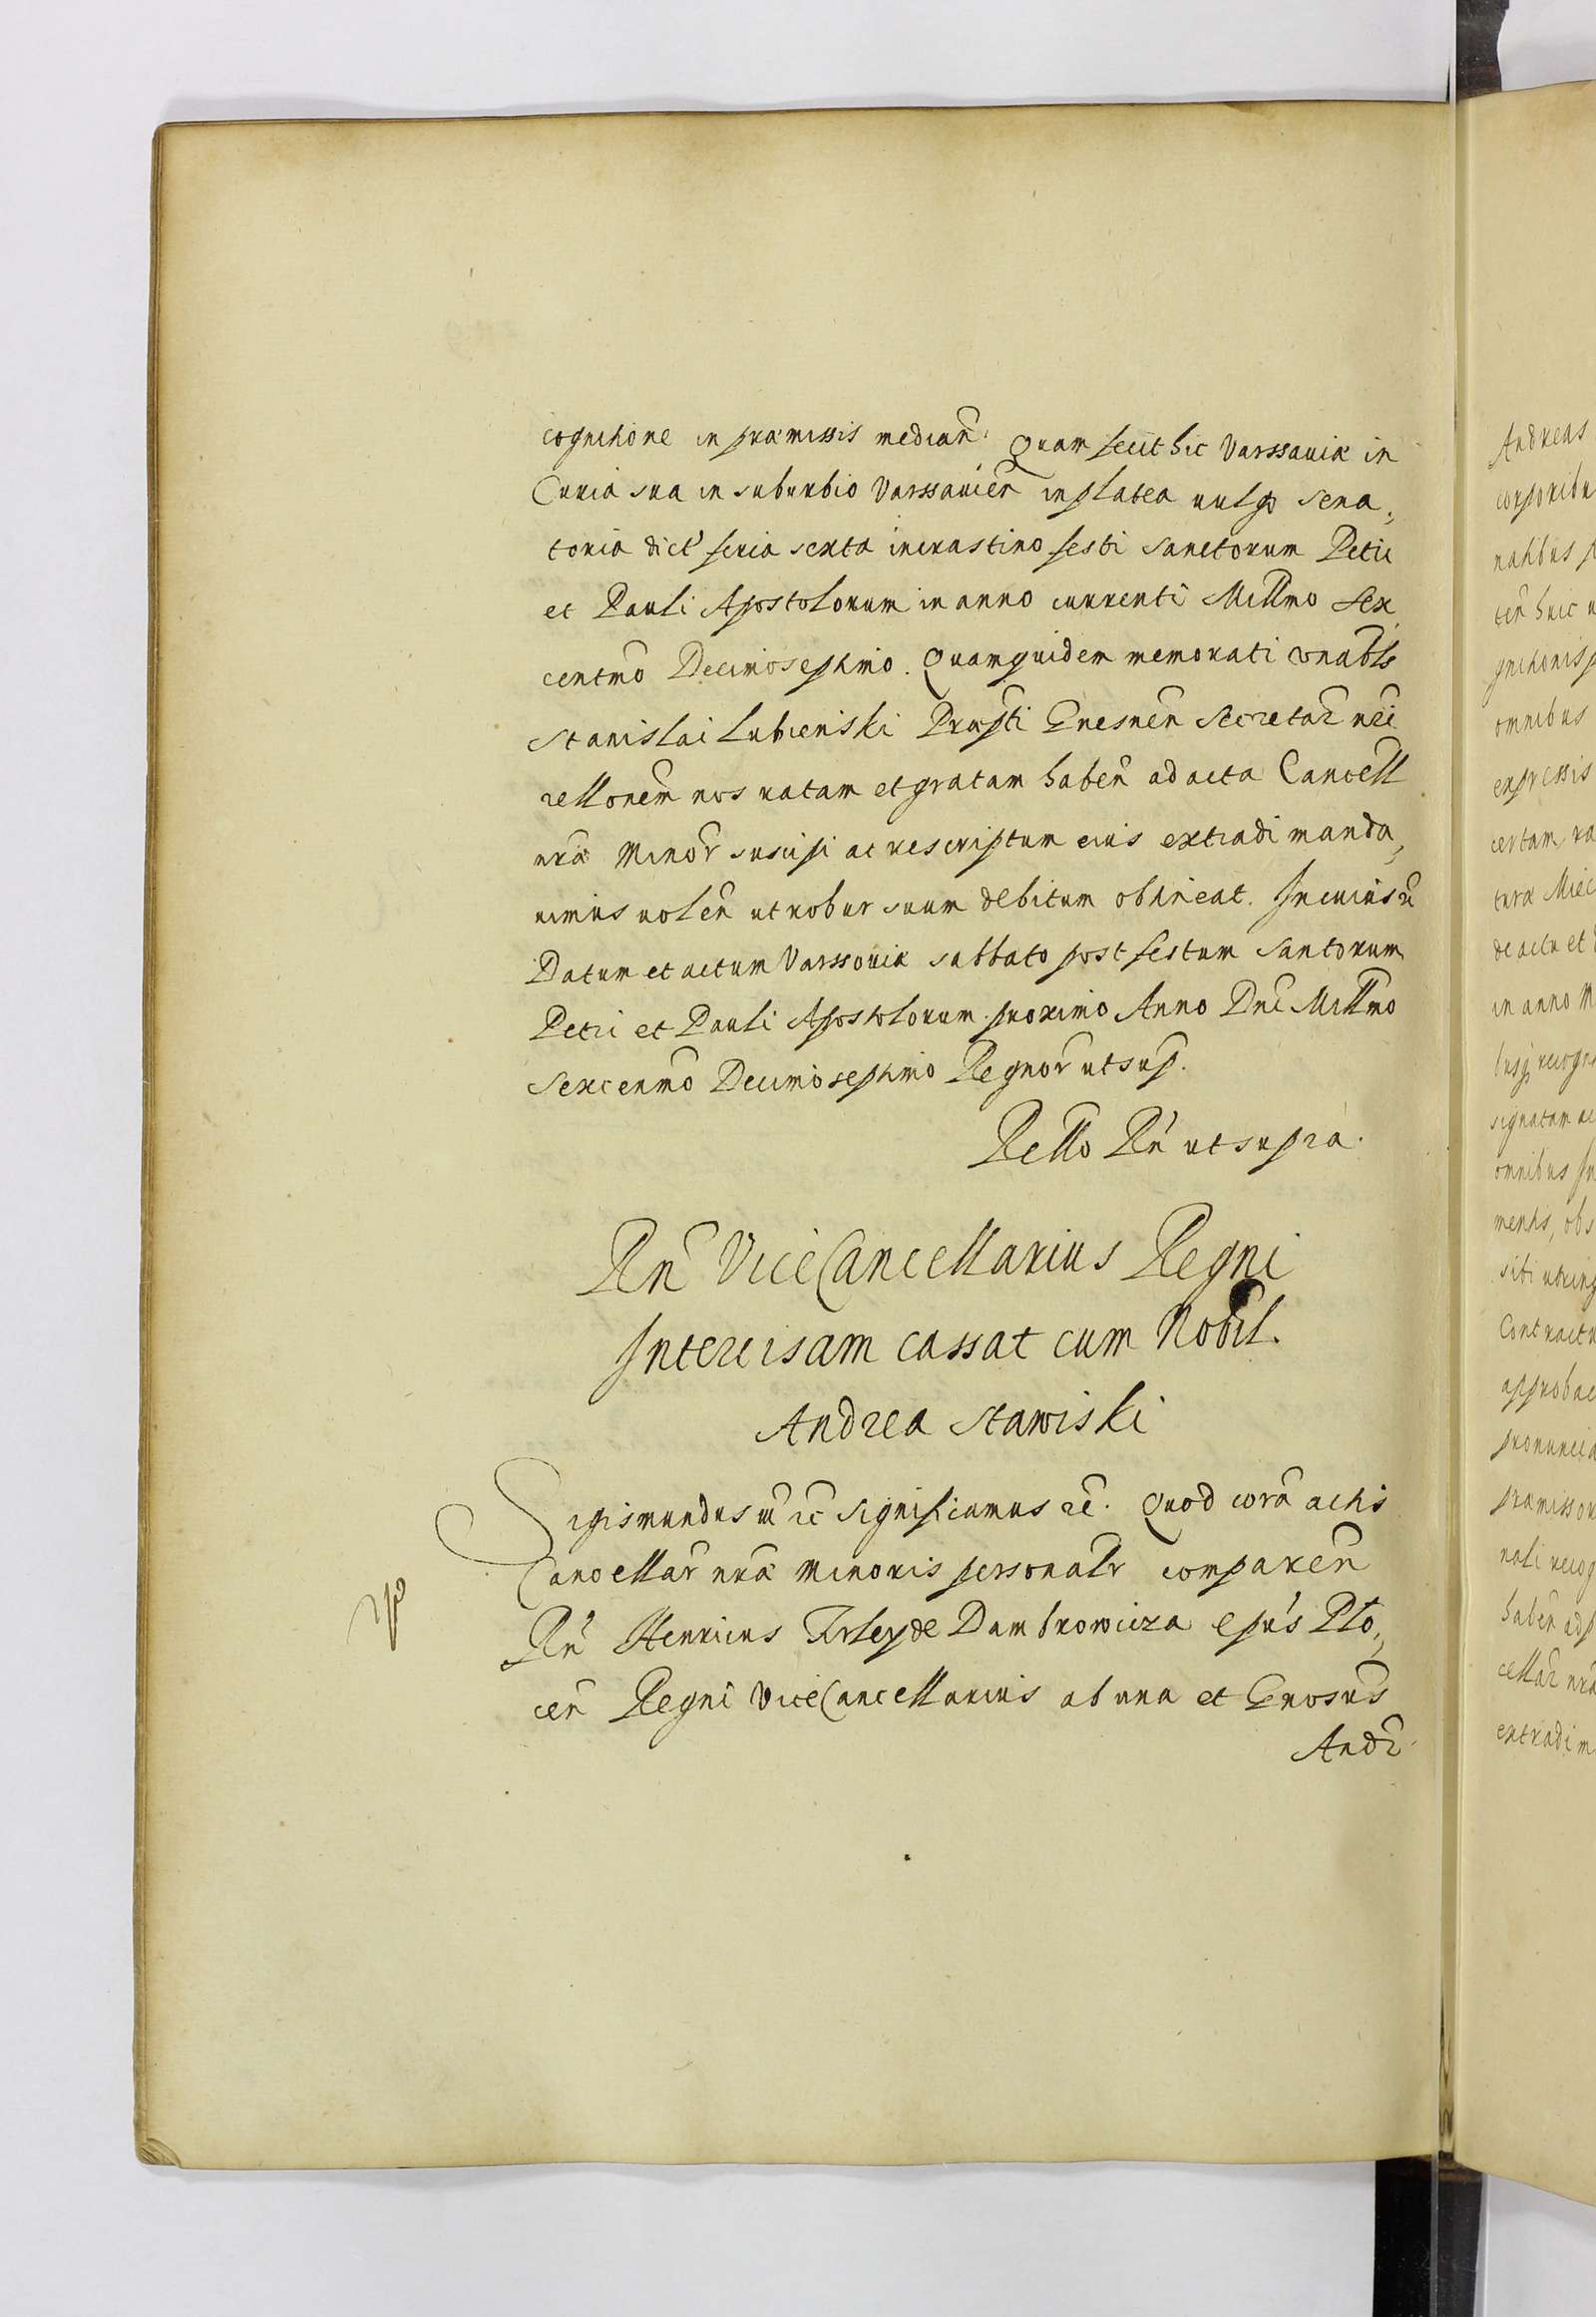 cognitione in præmissis median̄. Quam fecit hic Varssaviæ in
Curia sua in suburbio Varssavien̄ in platea vulgo Sena,
toria dict' feria sexta in crastino festi Sanctorum Petri
et Pauli Apostolorum in anno currenti Mill̄mo Sex
centm̄o Decimoseptimo. Quamquidem memorati
Stanislai Lubienski Præp̄ti Gnesnen̄ Secretar̄ nr̄i
rell̄onem nos ratam et gratam haben̄ ad acta Cancell̄
nr̄æ Minor̄ suscipi ac rescriptum eius extradi manda,
uimus volen̄ ut robur suum debitum obtineat. In cuius r̄
Datum et actum Varssoviæ sabbato post festum Santorum
Petri et Pauli Apostolorum proximo Anno Dn̄i Mill̄mo
Sexcenm̄o Decimoseptimo Regnor̄ ut sup.
Rell̄o Rn̄ ut supra.
Rn̄ ViceCancellarius Regni
Intercisam cassat cum Nobil.
Andrea Stawiski
Sigismundus III rc̄ significamus rc̄. Quod corā actis
Cancellar̄ nr̄æ Minoris personalr̄ comparen̄
Rn̄ Henricus Firley de Dambrowicza Ep̄us Plo,
cen̄ Regni ViceCancellarius ab una et Gn̄rosus
Andr̄
Andreas
corporibu
ten̄ huic
omnibus
expressis
certam ra
turæ Miec
de actu et
in anno M
signatam ac
omnibus
mentis, obs
Contractu
approbac
pronuncia
præmissor
haben̄ ad
cellar̄ nr̄æ
extradi m